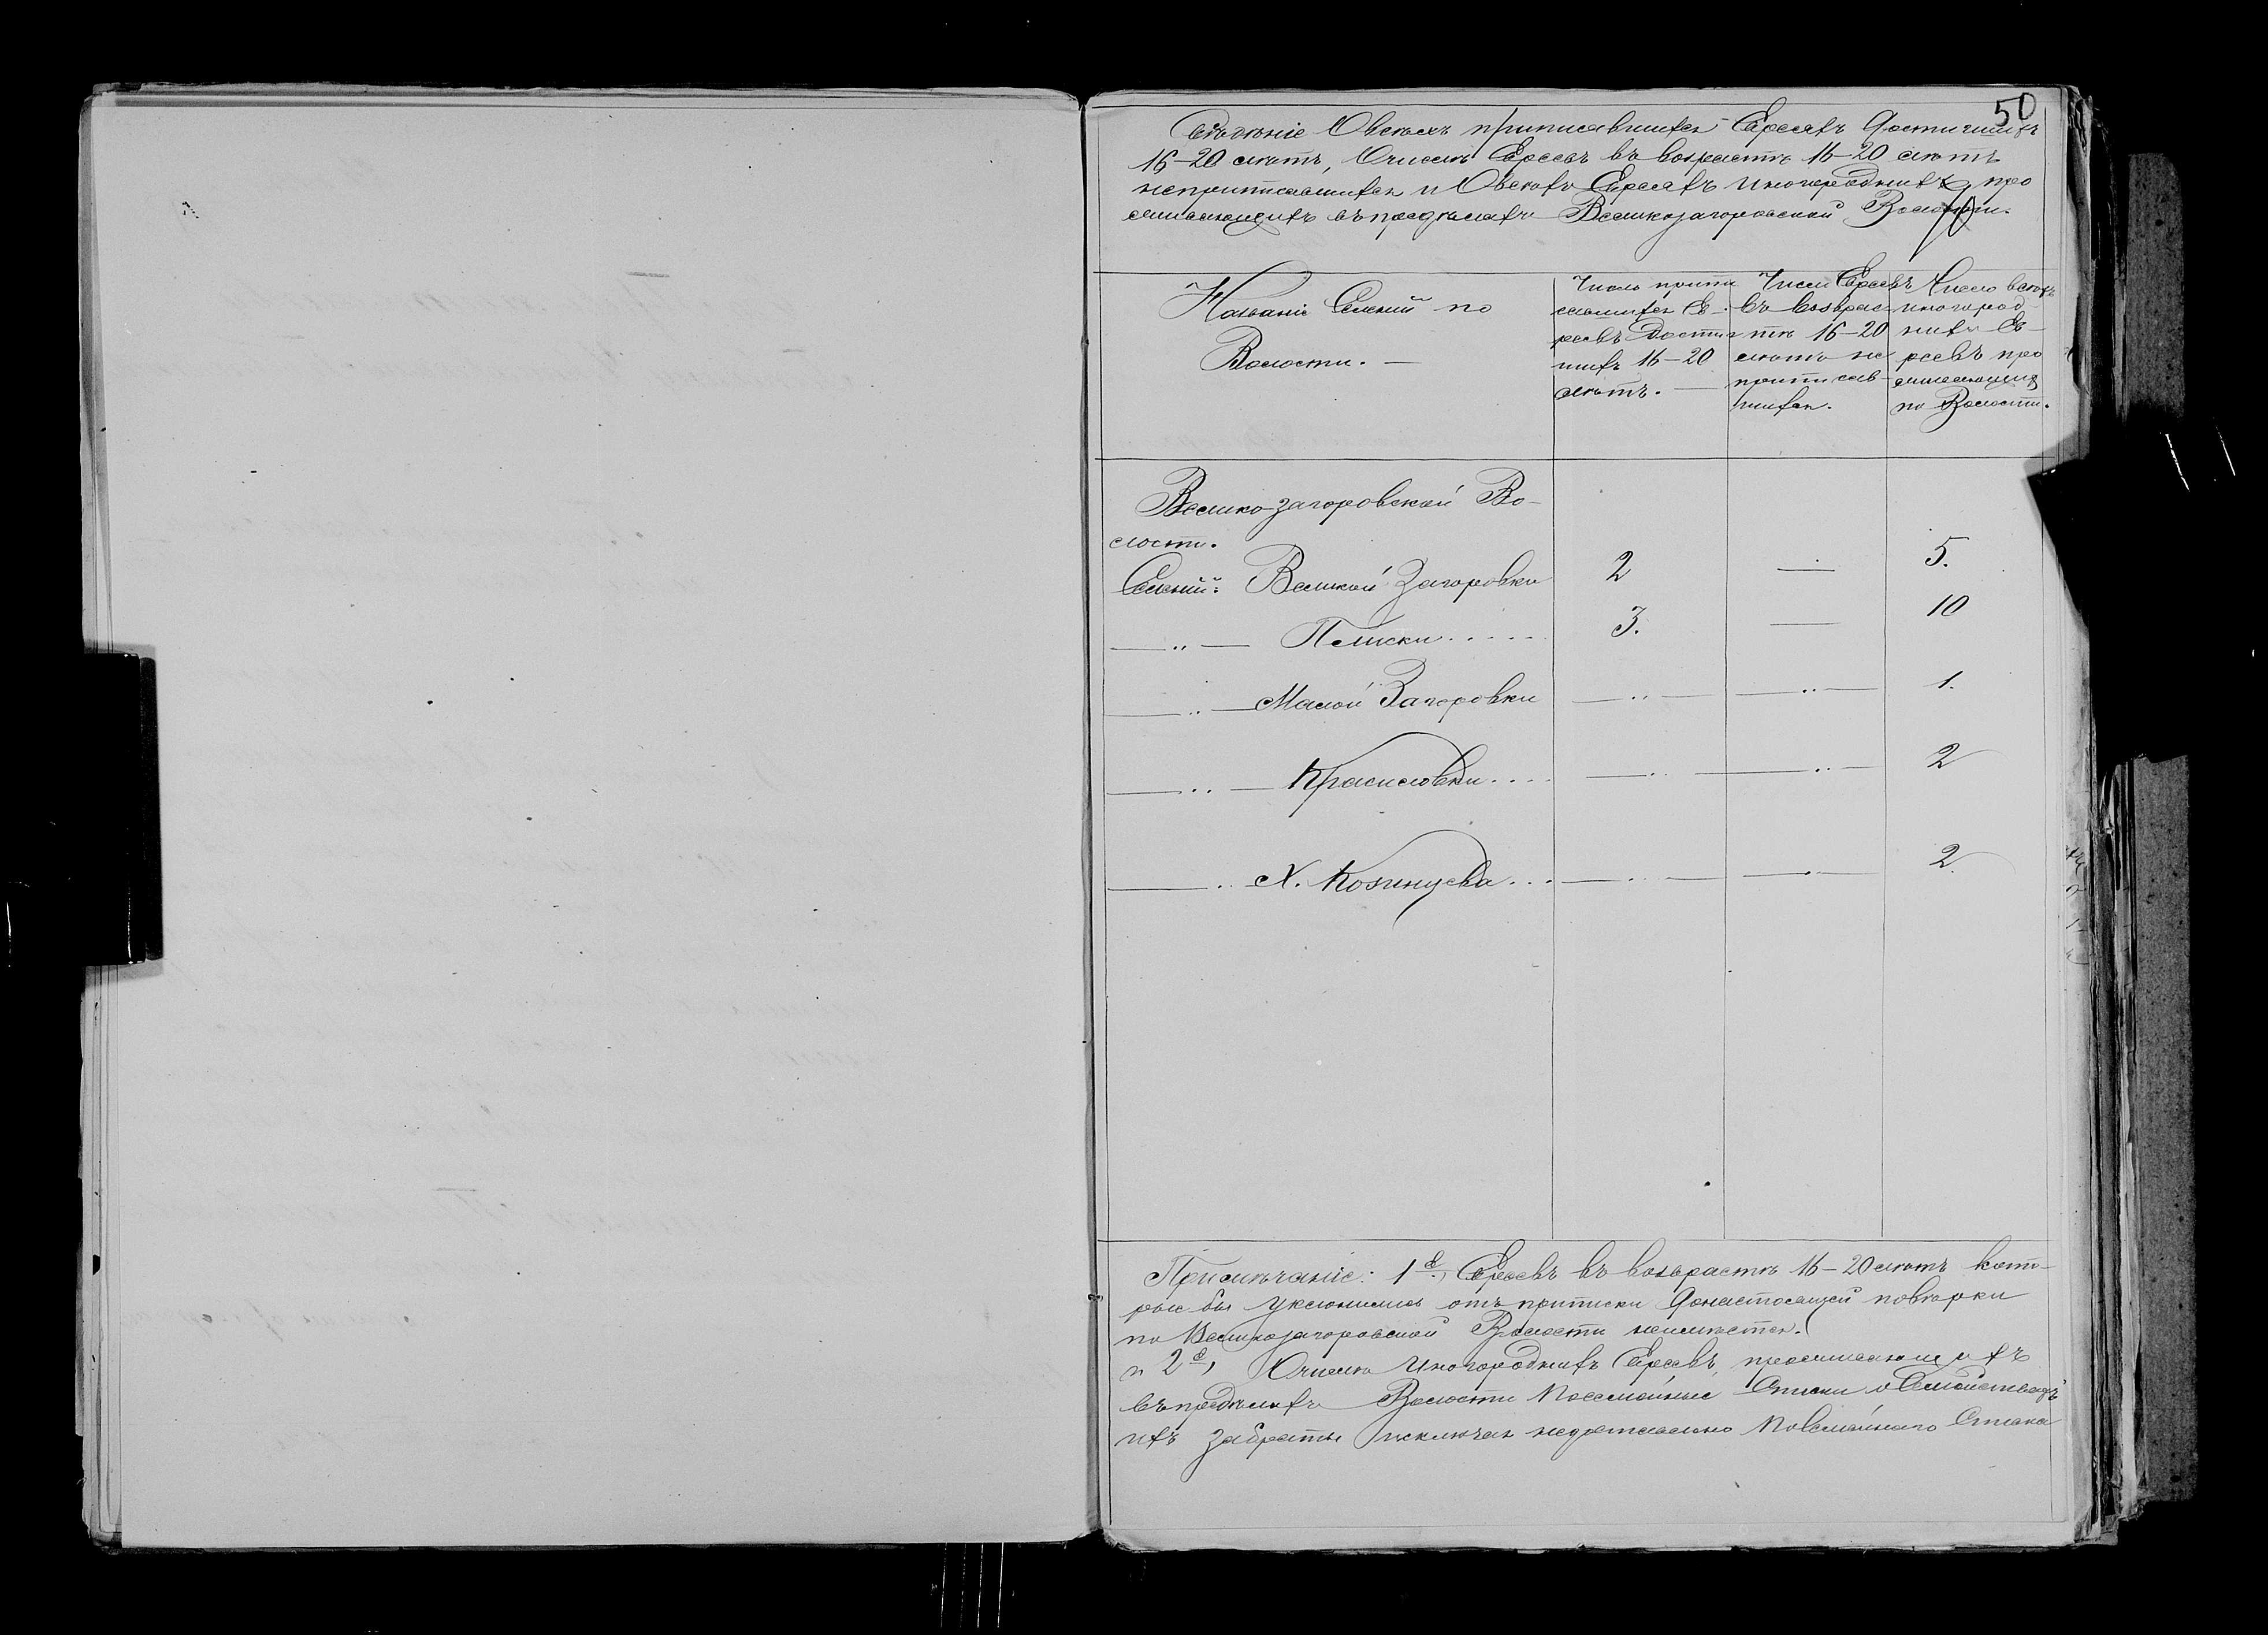 50
Свѣдѣніе Овсѣхъ приписавшихся Евреяхъ Достигшихъ
16-20 лѣтъ, Очислѣ Евреевъ въ возрастѣ 16-20 лѣтъ
неприписавшихся и Овсѣхъ Евреяхъ иногороднихъ, про
живающихъ въ предѣлахъ Великозагоровской Волости.
Названіе Селеній по
Волости. —
Число припи
савшихся Ев-
реевъ Достиг
шихъ 16-20
лѣтъ. —
Число Евреевъ
въ возврас-
тѣ 16-20
лѣтъ не
приписав-
шихся.
Число всѣхъ
иногород-
нихъ Ев-
реевъ про
живающихъ
по Волости.
Велико-загоровской Во-
лости.
Селеній: Великой Загоровки 2 — 5.
—"— Плиски..... 3. — 10
—"— Малой Загоровки —"— —"— 1.
—"— Красиловки.... —"— —"— 2
—"— Х. Козинцева... —"— —"— 2.
Примѣчаніе: 1е, Евреевъ въ возврастѣ 16-20 лѣтъ кото-
рые бы уклонились отъ приписки донастоящей повѣрки
по Великозагоровской Волости неимѣется.
и 2е, Очислѣ Иногороднихъ Евреевъ, проживающихъ
въ предѣлахъ Волости Посемейные Списки о Семействахъ
ихъ забраты исключая Посемейнаго Списка